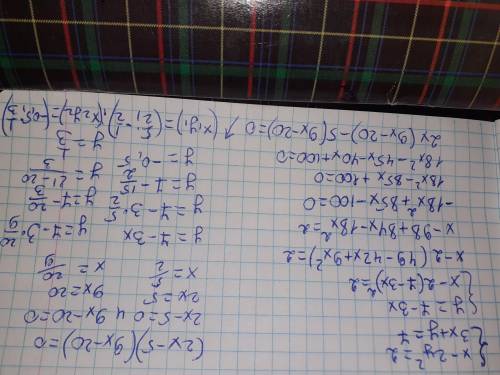 { x - 2y² = 2
3x + y = 7
{ y = 7 - 3x
x - 2(7 - 3x)² = 2
x - 2(49 - 42x + 9x²) = 2
x - 98 + 84x - 18x² = 2
-18x² + 85x - 100 = 0
18x² - 85x + 100 = 0
18x² - 45x - 40x + 100 = 0
2x(9x - 20) - 5(9x - 20) = 0
(2x - 5)(9x - 20) = 0
2x - 5 = 0 и 9x - 20 = 0
2x = 5 9x = 20
x = 5/2 x = 20/9
y = 7 - 3x y = 7 - 3 · 20/9
y = 7 - 3 · 5/2 y = 7 - 20/3
y = 7 - 15/2 y = 21-20/3
y = -0,5 y = 1/3
(x₁, y₁) = (5/2, -1/2), (x₂ y₂) =